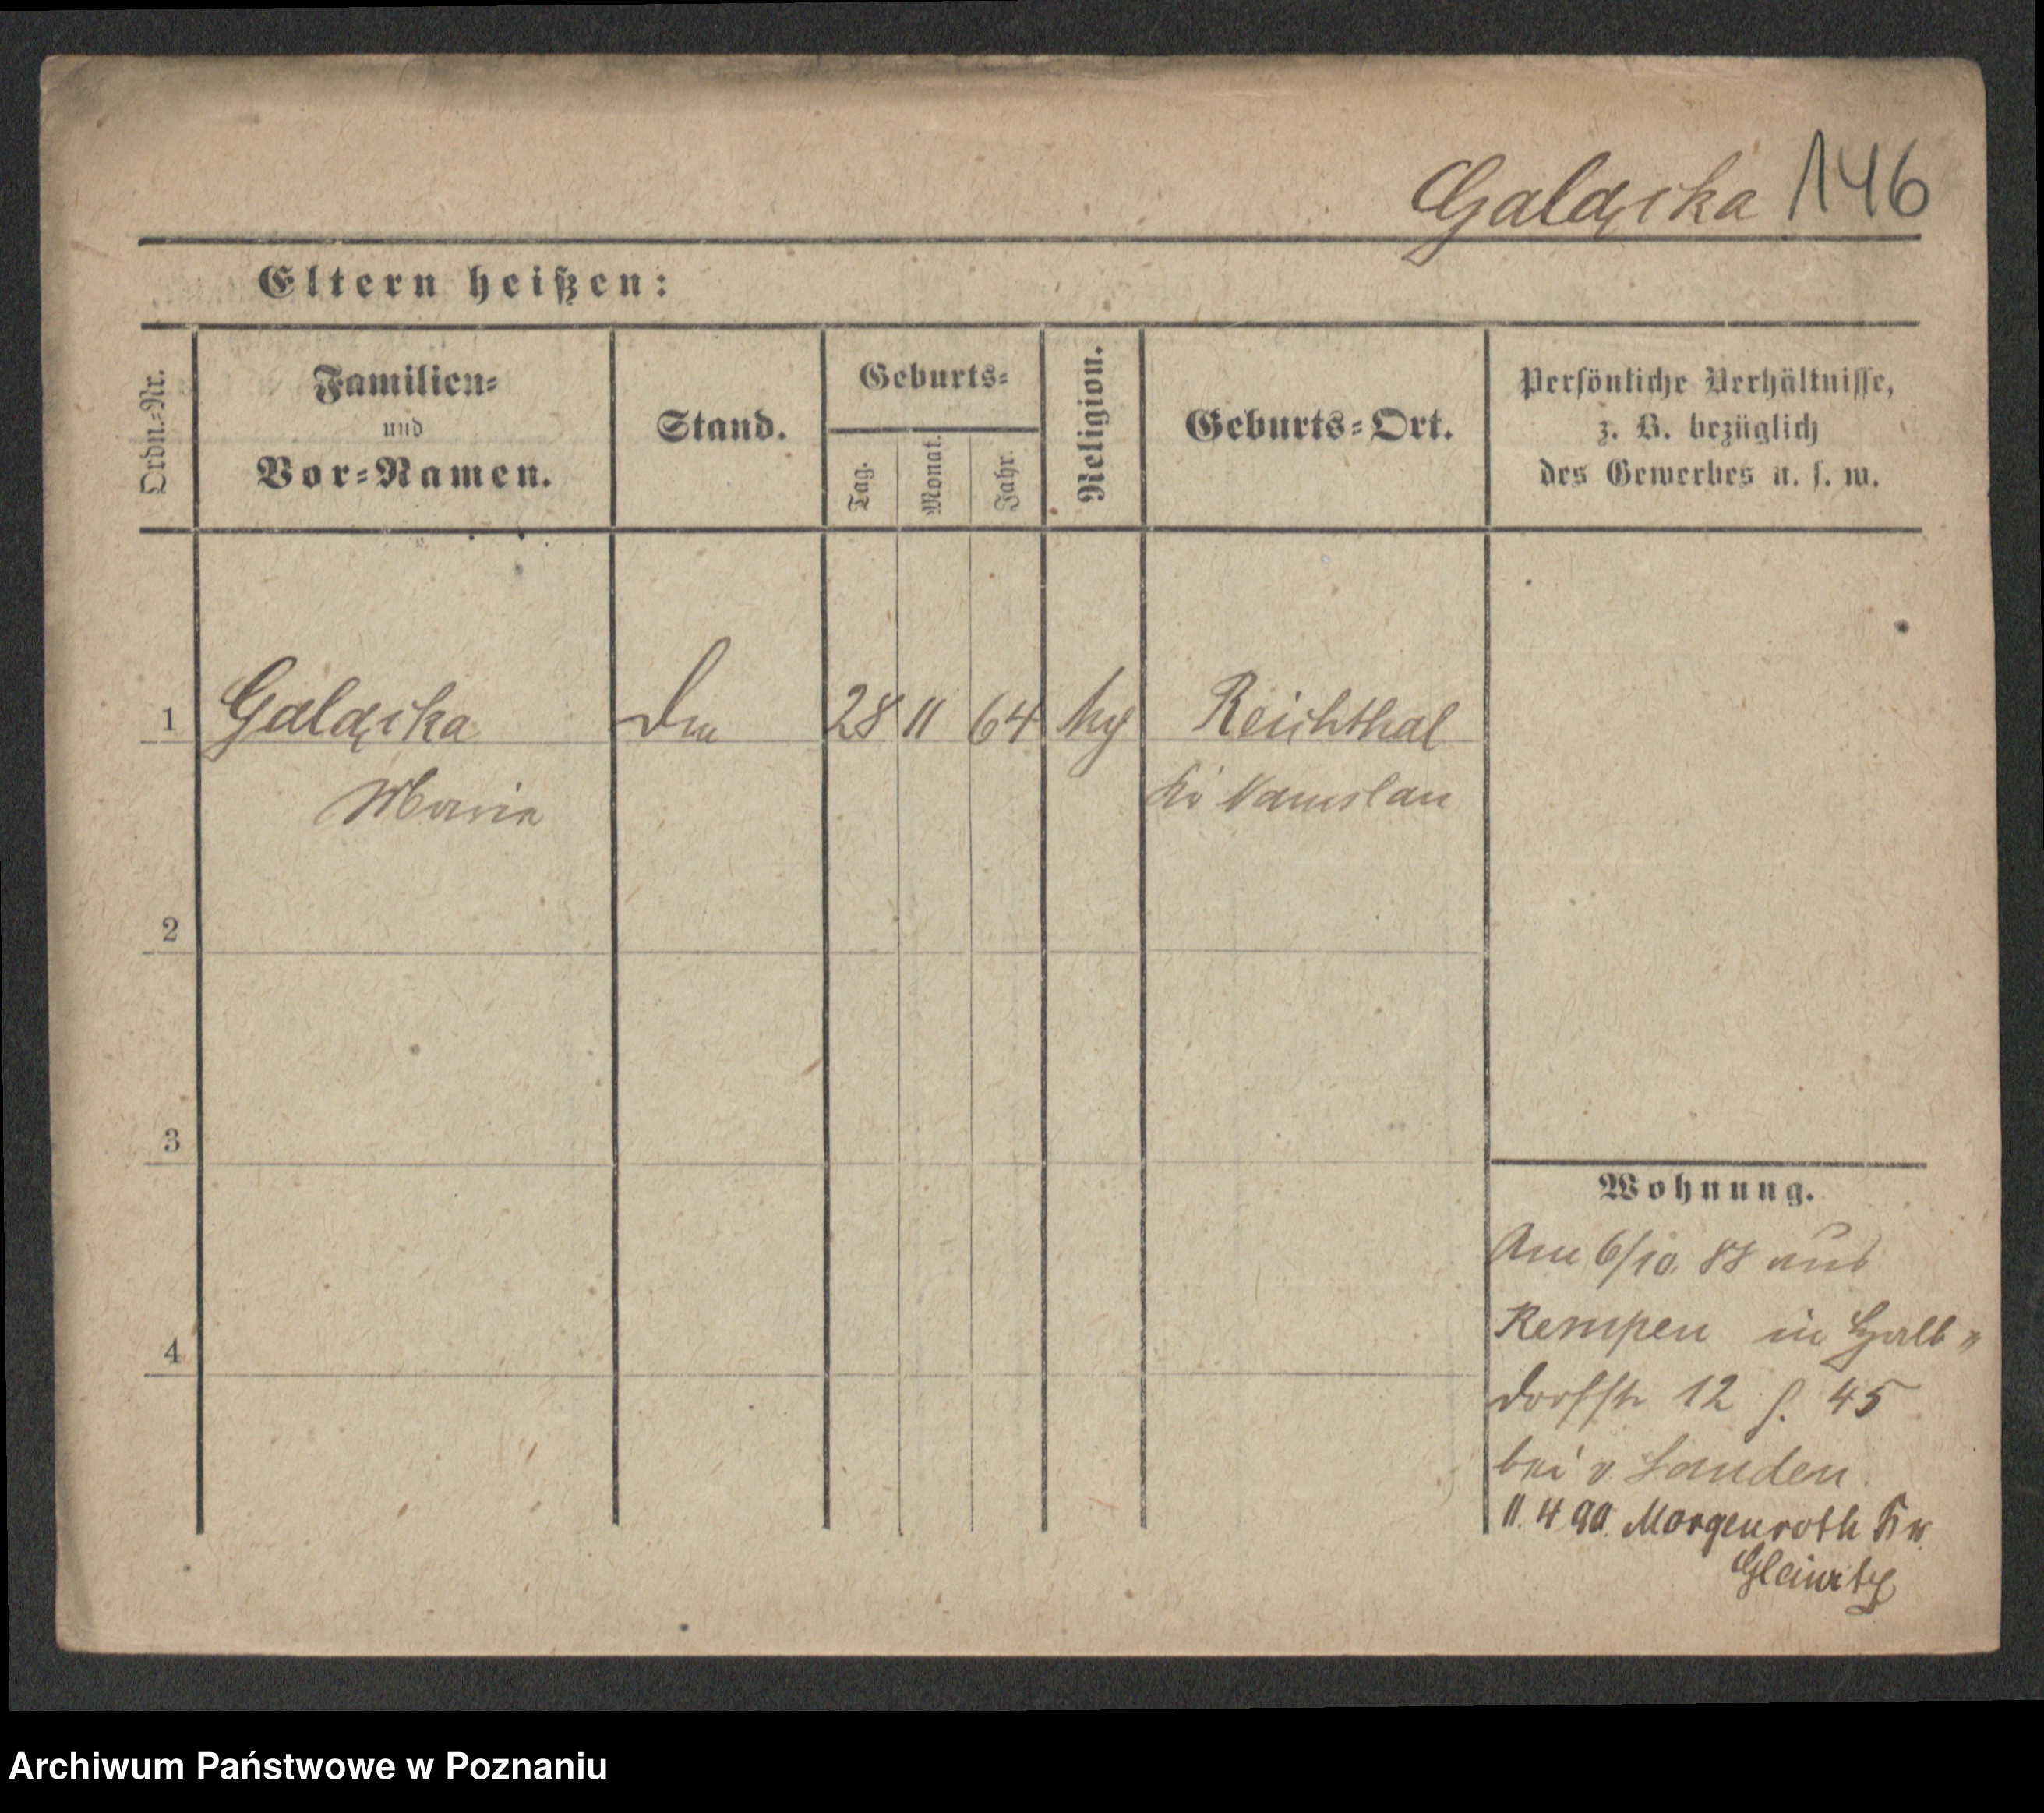 Galąska 146
Eltern heißen:
Ordn.-Nr.
Familien-
und
Vor-Namen.
Stand.
Geburts-
Tag.
Monat.
Jahr.
Religion.
Geburts-Ort.
Persönliche Verhältnisse,
z. B. bezüglich
des Gewerbes u. s. w.
1 28 11 64 Reichthal
Maria Namslau
2
3
4
Wohnung.
Am 6/10. 88 aus
Kempen in Halb-
dorfstr 12 45
bei v. Landen.
11. 4 90. Morgenroth Kr.
Gleiwitz
Archiwum Państwowe w Poznaniu